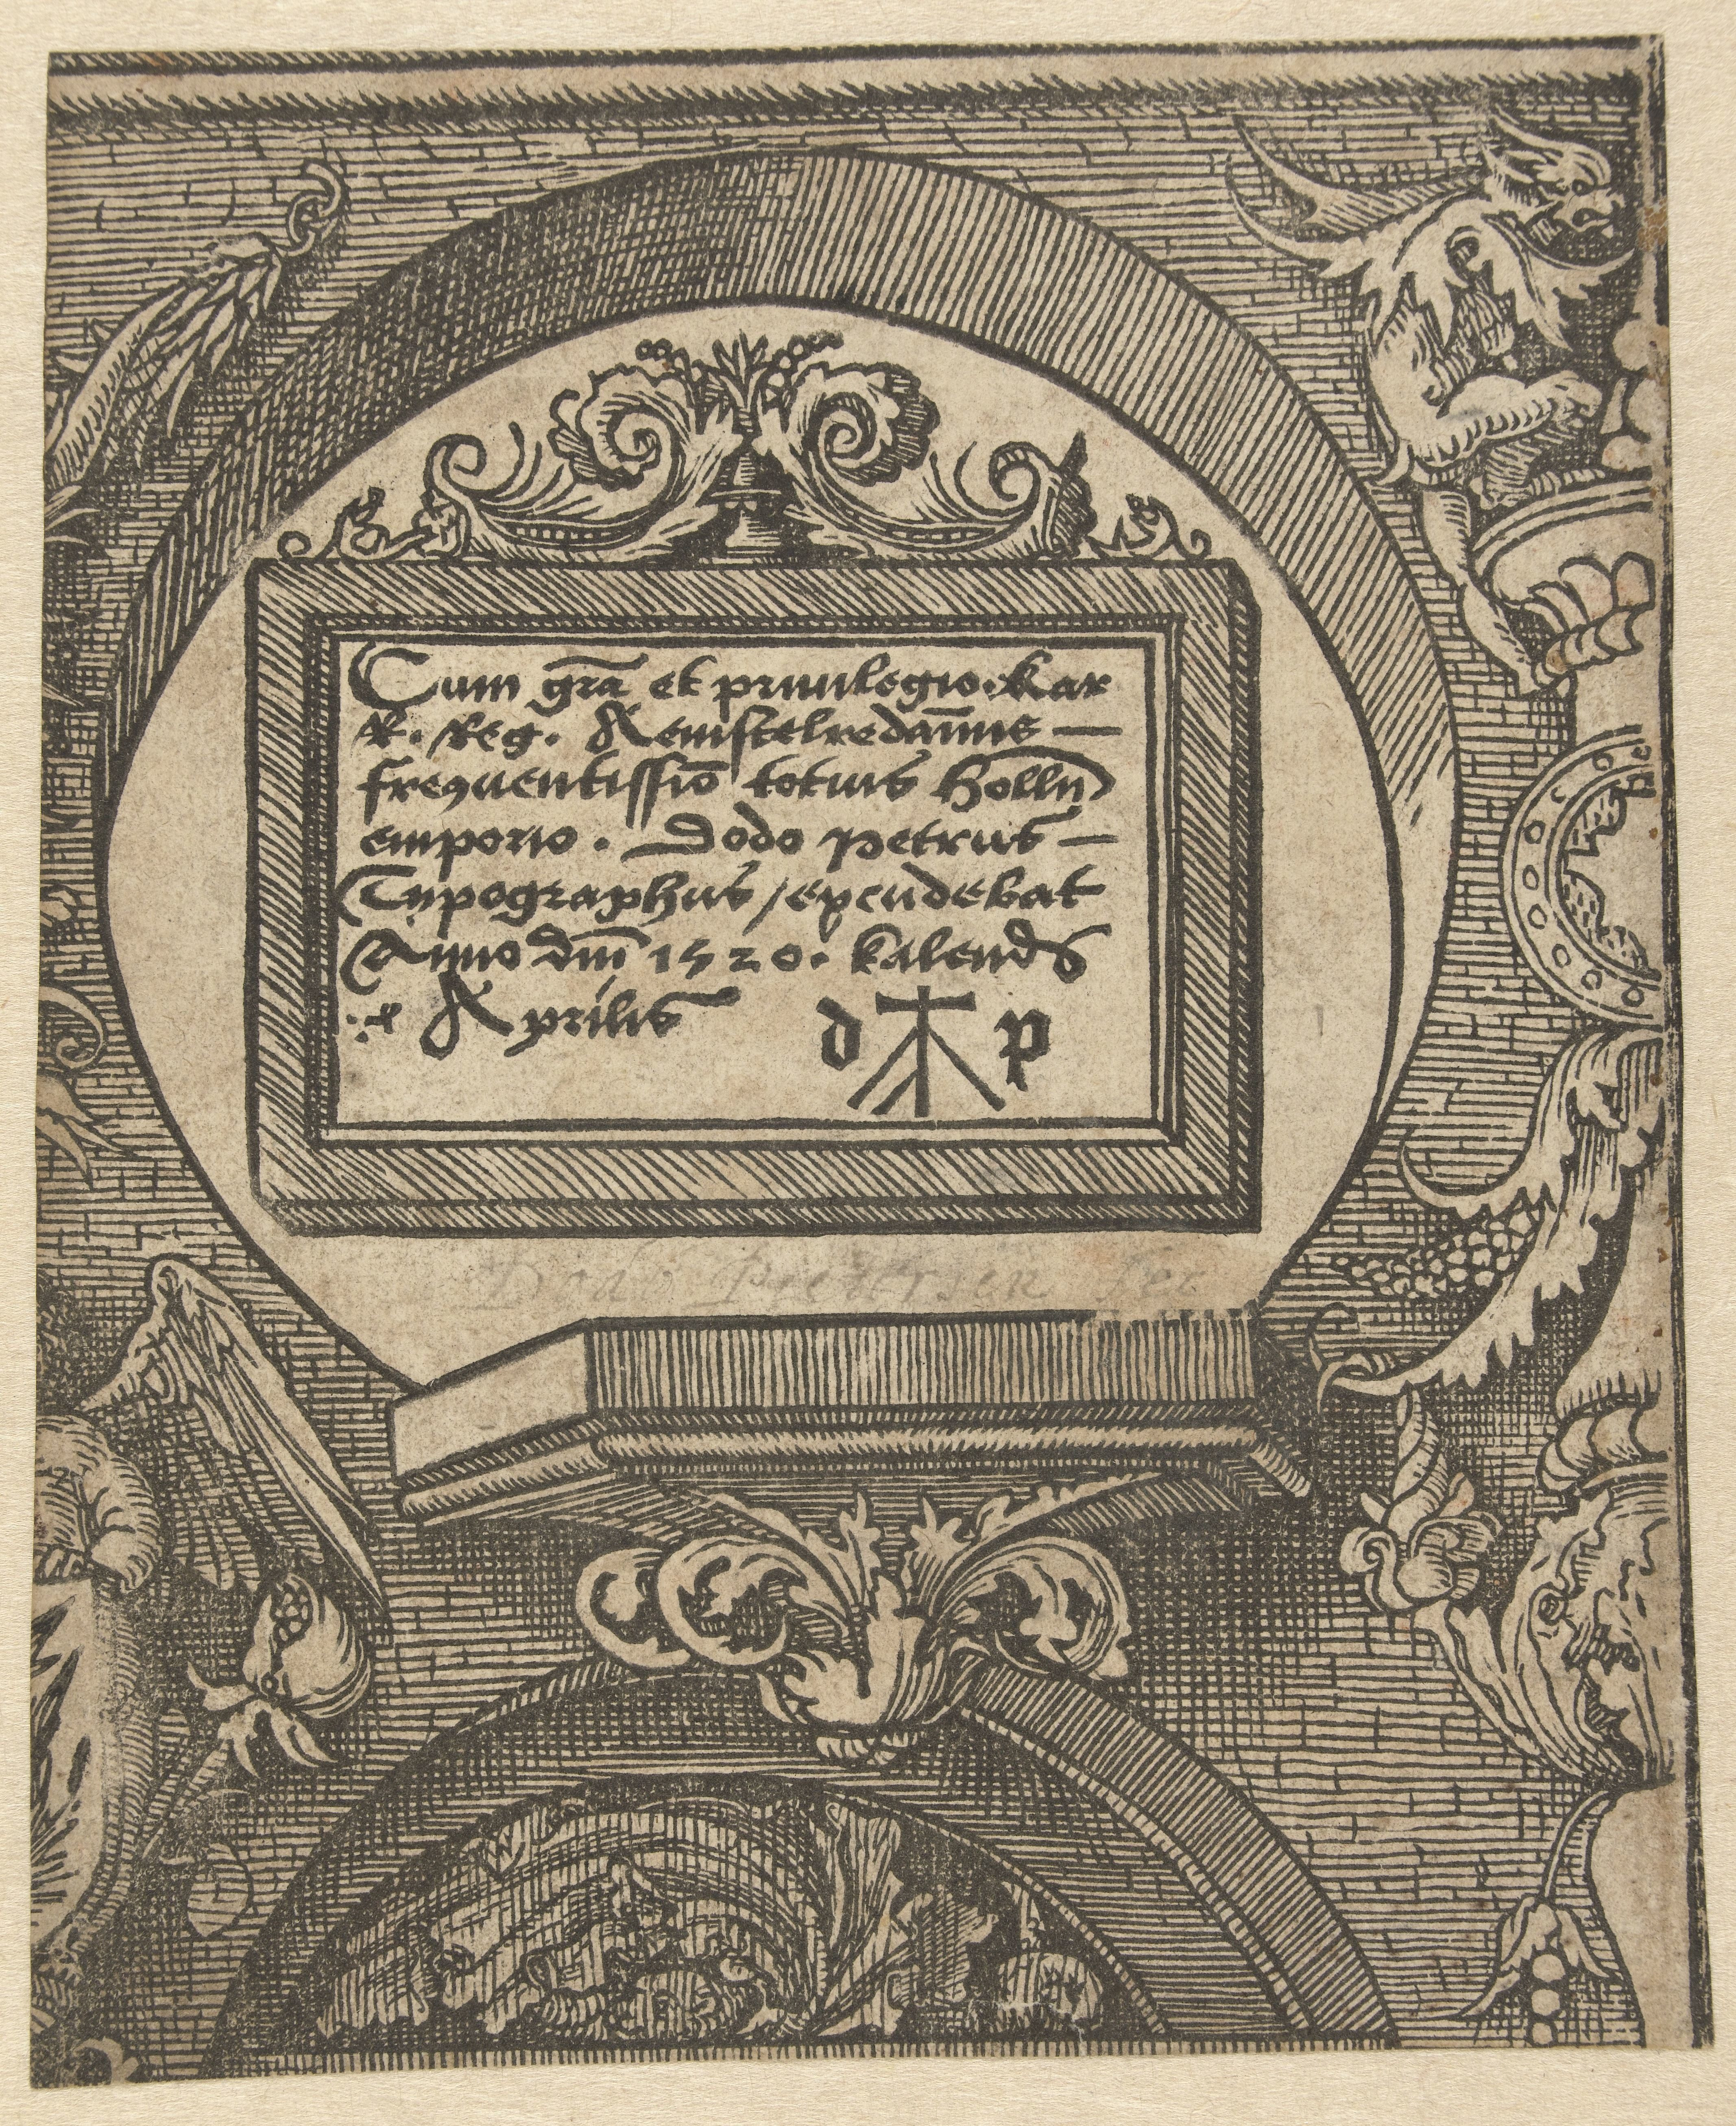 Cum grā et priuilegio. Kar
R. Reg. Aemstelredam̄us —
frequentissīo totius Hollā
emporio. Dodo Petrus —
Typographus / excudebat
Anno dnī 1520. kalends
Aprilis
d p
Dodo Pietersen fec
W